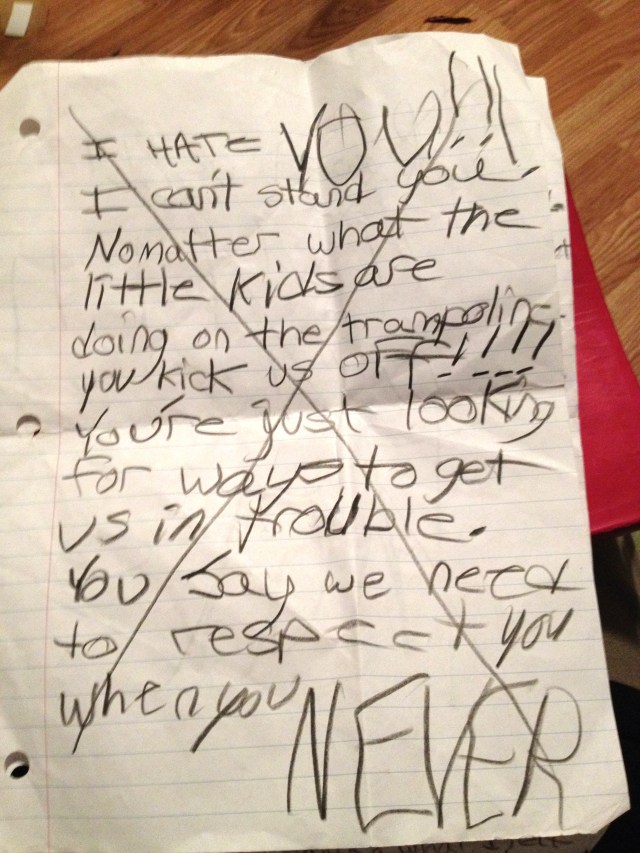 I HATE YOU!!!
I can't stand you.
No matter what the
little kids are
doing on the trampoline
you kick us off!!!!
You're just looking
for ways to get
us in trouble.
You say we need
to respect you
when you NEVER